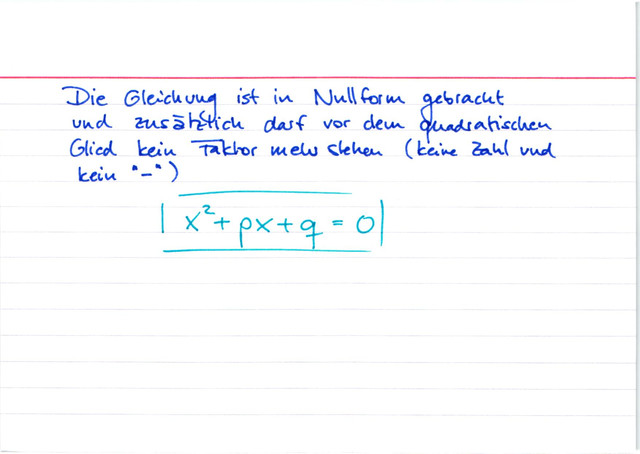 Die Gleichung ist in Nullform gebracht
und zusätzlich darf vor dem quadratischen
Glied kein Faktor mehr stehen (keine Zahl und
kein "-")
x²+px+q = 0